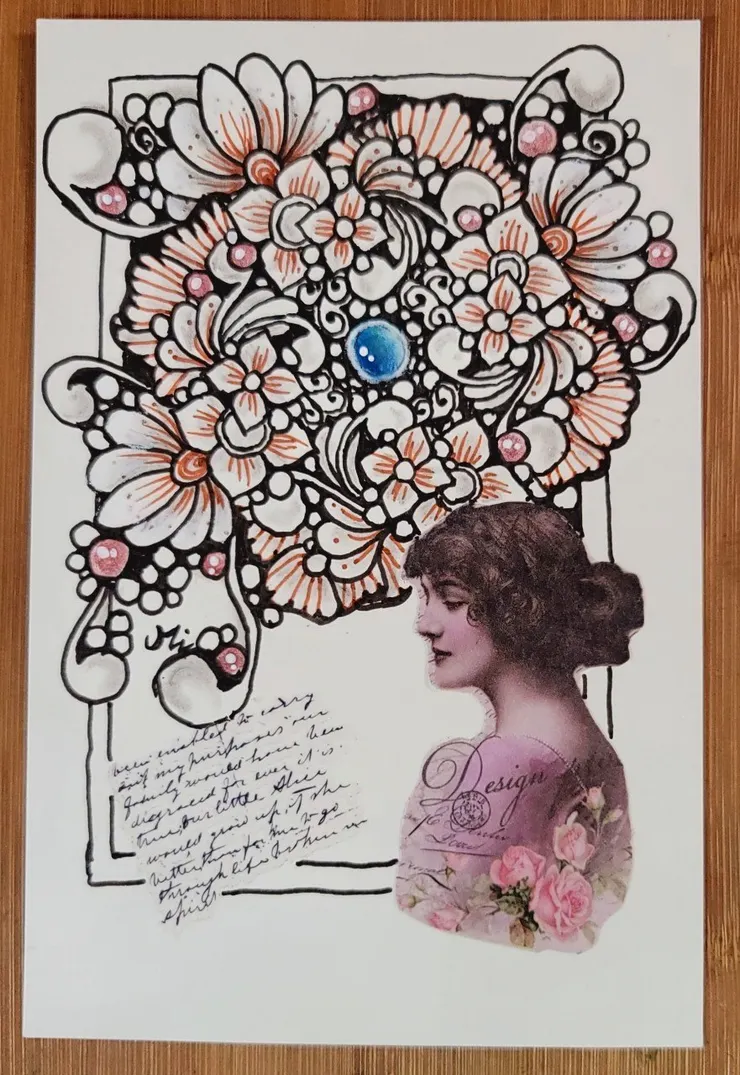 Mi
been enabled to carry
out my purposes our
family would have been
disgraced for ever it is
true, our little Alice
would grow up, it she
better than for me to go
through life broken in
spirit
Design